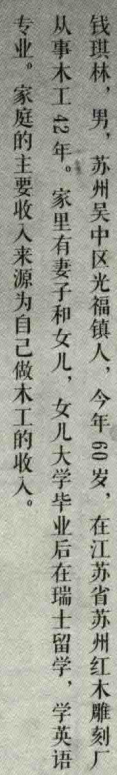 钱琪林，男，苏州吴中区光福镇人，今年60岁，在江苏省苏州红木雕刻厂
从事木工42年。家里有妻子和女儿，女儿大学毕业后在瑞士留学，学英语
专业。家庭的主要收入来源为自己做木工的收入。